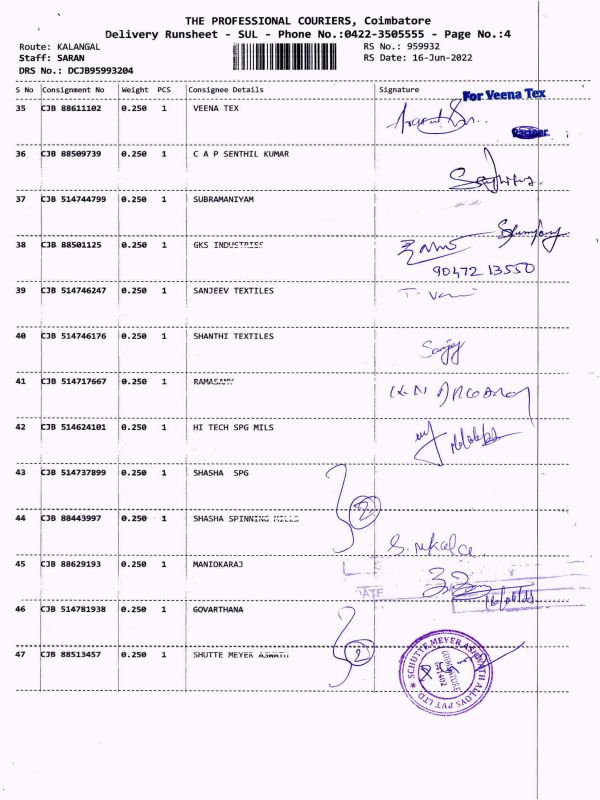 THE PROFESSIONAL COURIERS, Coimbatore
Delivery Runsheet - SUL - Phone No.:0422-3505555 - Page No.:4
Route: KALANGAL RS No.: 959932
Staff: SARAN RS Date: 16-Jun-2022
DRS No.: DCJB95993204
S No Consignment No Weight PCS Consignee Details Signature
For Veena Tex
35 CJB 88611102 0.250 1 VEENA TEX
Partner
36 CJB 88509739 0.250 1 C A P SENTHIL KUMAR
37 CJB 514744799 0.250 1 SUBRAMANIYAM
38 CJB 88501125 0.250 1 GKS INDUSTRIES
90472 13550
39 CJB 514746247 0.250 1 SANJEEV TEXTILES
40 CJB 514746176 0.250 1 SHANTHI TEXTILES
Sanjay
41 CJB 514717667 0.250 1 RAMASAMY
42 CJB 514624101 0.250 1 HI TECH SPG MILS
43 CJB 514737899 0.250 1 SHASHA SPG
2
44 CJB 88443997 0.250 1 SHASHA SPINNING MILLS
45 CJB 88629193 0.250 1 MANIOKARAJ
DATE
46 CJB 514781938 0.250 1 GOVARTHANA
47 CJB 88513457 0.250 1 SHUTTE MEYER ASWATH
2
SCHUTTE MEYER ASHWATH ALLOYS PVT LTD
COIMBATORE
641402